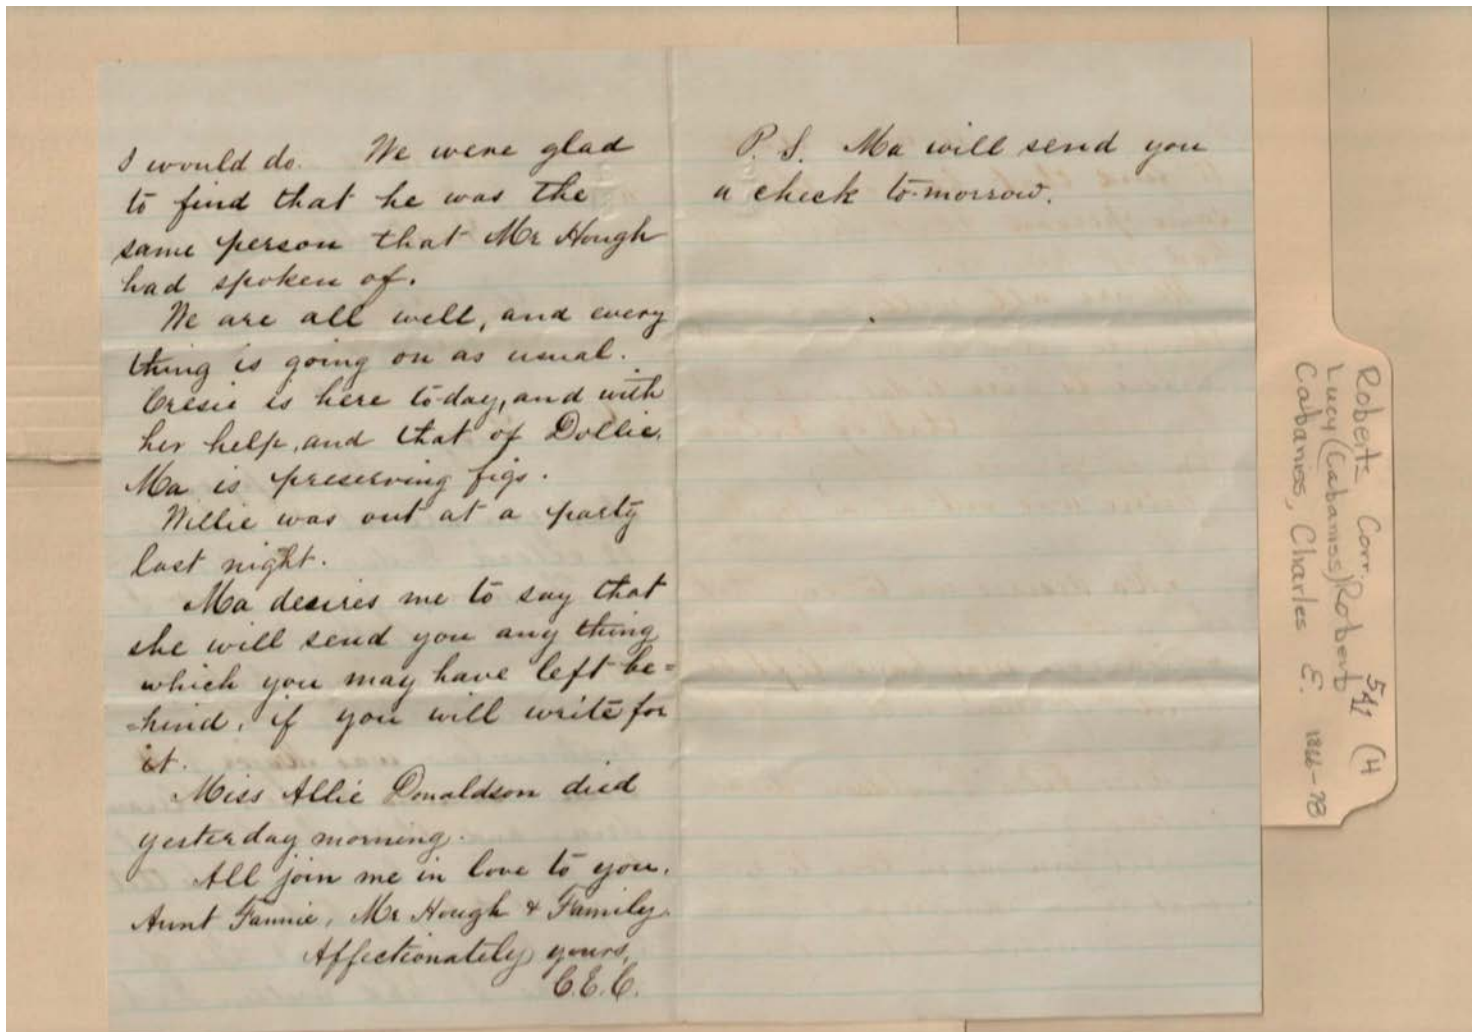 I would do. We were glad
to find that he was the
same person that Mr Hough
had spoken of.
We are all well, and every
thing is going on as usual.
Cresie is here to-day, and with
her help, and that of Dollie,
Ma is preserving figs.
Willie was out at a party
last night.
Ma desires me to say that
she will send you any thing
which you may have left be=
=hind, if you will write for
it.
Miss Allie Donaldson died
yesterday morning.
All join me in love to you,
Aunt Fannie, Mr Hough & Family.
Affectionately yours,
C.E.C.
P.S. Ma will send you
a check to-morrow.
Roberts Corr. 541 (4
Lucy (Cabaniss) Robert
Cabaniss, Charles E. 1866-78